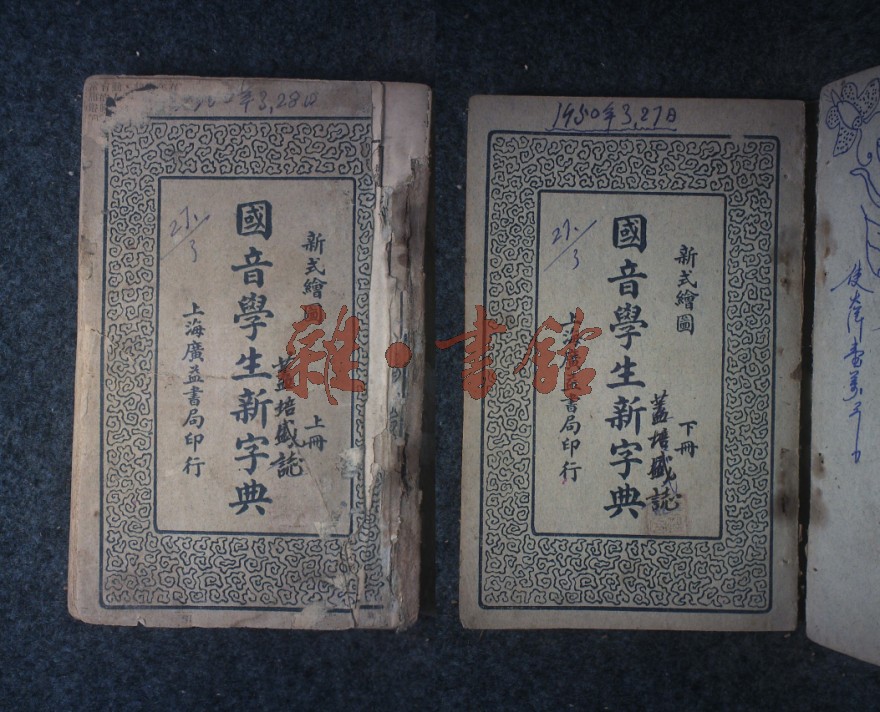 年3,28日
新式繪圖
國音學生新字典
上冊
蓋培盛誌
上海廣益書局印行
1950年3,27日
新式繪圖
國音學生新字典
下冊
蓋培盛誌
上海廣益書局印行
雜·書館